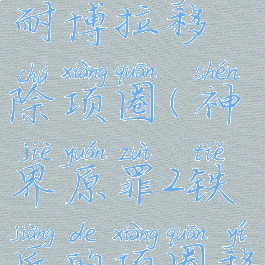 耐博拉移
chú xiàng quān shén
除项圈(神
jiè yuán zuì tiě
界原罪2铁
jiàng de xiàng quān yí
匠的项圈移